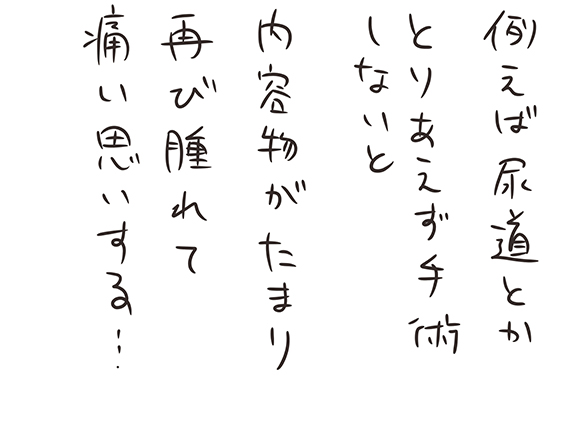 例えば尿道とか
とりあえず手術
しないと
内容物がたまり
再び腫れて
痛い思いする…